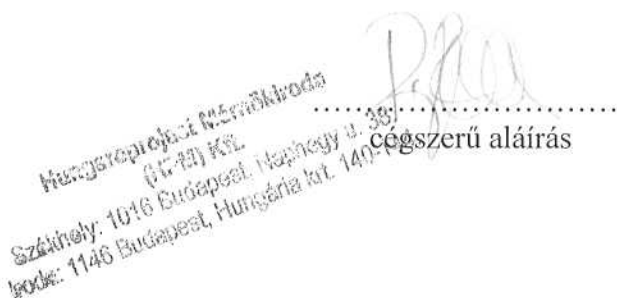 Hungaroproject Mérnökiroda
(HPM) Kft.
Székhely: 1016 Budapest, Naphegy u. 38.
Iroda: 1146 Budapest, Hungária krt. 140-
....................................
cégszerű aláírás